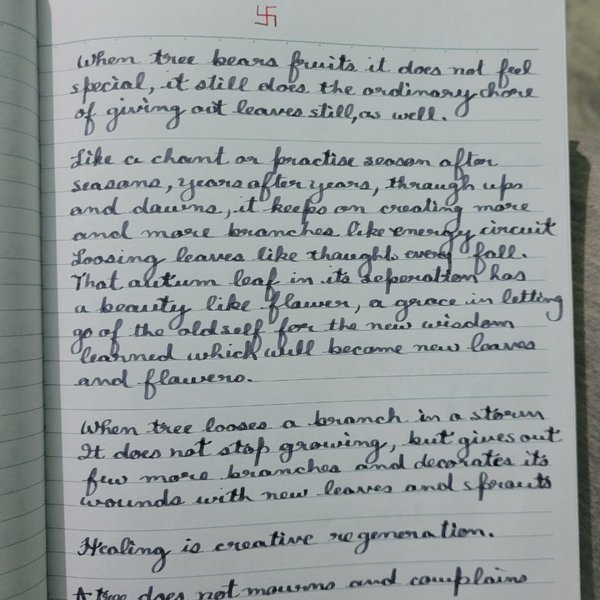 卐
When tree bears fruits it does not feel
special, it still does the ordinary chore
of giving out leaves still, as well.
Like a chant or practise season after
seasons, years after years, through ups
and dawns, it keeps on creating more
and more branches like energy circuit
Loosing leaves like thoughts every fall.
That autum leaf in its seperation has
a beauty like flower, a grace in letting
go of the old self for the new wisdom
learned which will become new leaves
and flowers.
When tree looses a branch in a storm
It does not stop growing, but gives out
few more branches and decorates its
wounds with new leaves and sprouts
Healing is creative regeneration.
A tree does not mourns and complains